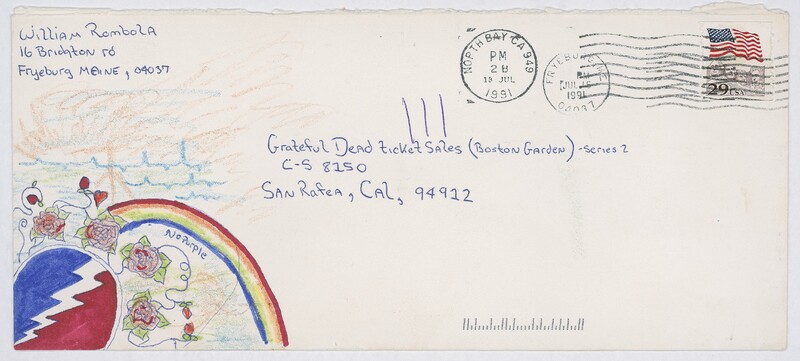 William Rombola
16 Bridgton rd
Fryeburg MAINE, 04037
NORTH BAY CA 949
PM
2B
18 JUL
1991
FRYEBURG ME
PM
JUL 16
1991
04037
29 USA
Grateful Dead ticket Sales (Boston Garden) - series 2
C-S 8150
SAN Rafea, CAL, 94912
No Purple